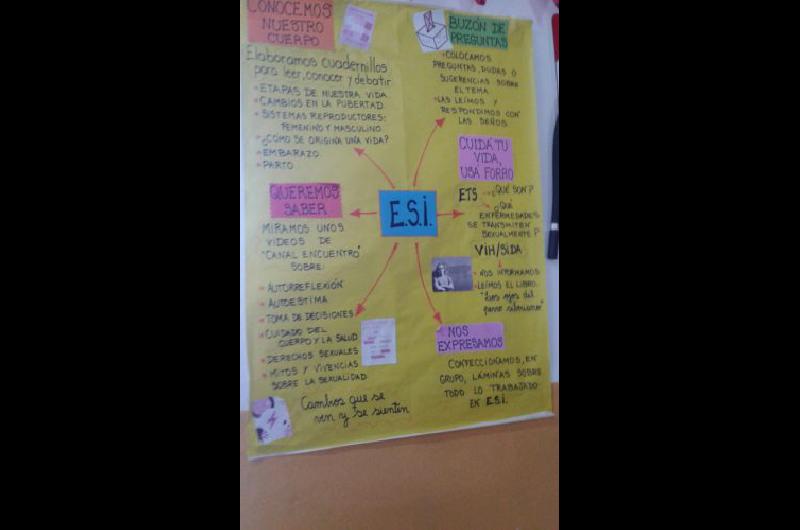 CONOCEMOS
NUESTRO
CUERPO
Elaboramos cuadernillos
para leer, conocer y debatir:
• ETAPAS DE NUESTRA VIDA
• CAMBIOS EN LA PUBERTAD
• SISTEMAS REPRODUCTORES:
FEMENINO Y MASCULINO
• ¿CÓMO SE ORIGINA UNA VIDA?
• EMBARAZO
• PARTO
BUZÓN DE
PREGUNTAS
• COLOCAMOS
PREGUNTAS, DUDAS Ó
SUGERENCIAS SOBRE
EL TEMA
• LAS LEÍMOS Y
RESPONDIMOS CON
LAS SEÑOS
CUIDÁ TU
VIDA,
USÁ FORRO
ETS
¿QUÉ SON?
¿QUÉ
ENFERMEDADES
SE TRANSMITEN
SEXUALMENTE?
VIH/SIDA
• NOS INFORMAMOS
• LEÍMOS EL LIBRO:
"Los ojos del
perro siberiano"
E.S.I.
QUEREMOS
SABER
MIRAMOS UNOS
VIDEOS DE
"CANAL ENCUENTRO"
SOBRE:
• AUTORREFLEXIÓN
• AUTOESTIMA
• TOMA DE DECISIONES
• CUIDADO DEL
CUERPO Y LA SALUD
• DERECHOS SEXUALES
• MITOS Y VIVENCIAS
SOBRE LA SEXUALIDAD
Cambios que se
ven y se sienten
NOS
EXPRESAMOS
CONFECCIONAMOS, EN
GRUPO, LÁMINAS SOBRE
TODO LO TRABAJADO
EN E.S.I.